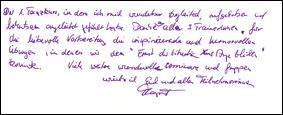 Der 1. Tangokurs, in dem ich mich wunderbar begleitet, aufgehoben und
angeleitet gefühlt habe. Danke allen 3 Trainerinnen für
die liebevolle Vorbereitung, die inspirierende und humorvollen
Übungen, in denen wir dem "Ernst der Situation ins Auge blicken"
konnte. Viele weitere wundervolle Seminare und Gruppen
wünsche ich Euch und allen Teilnehmerinnen